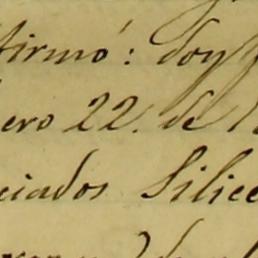 firmó: doy f
ero 22. de 1
ciados Silice